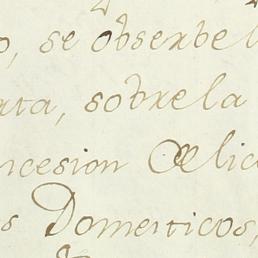 o, se observe l
ata, sobre la
ncesion Œlic
s Domesticos,